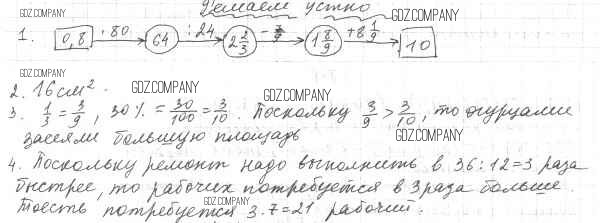 Решаем устно
GDZ.COMPANY
GDZ.COMPANY
1. 0,8 · 80 64 : 24 2 2/3 - 7/9 1 8/9 + 8 1/9 10
GDZ.COMPANY
2. 16 см².
GDZ.COMPANY
GDZ.COMPANY
3. 1/3 = 3/9, 30% = 30/100 = 3/10. Поскольку 3/9 > 3/10, то огурцами
засеяли большую площадь
GDZ.COMPANY
4. Поскольку ремонт надо выполнить в 36:12=3 раза
быстрее, то рабочих потребуется в 3 раза больше.
GDZ.COMPANY
Тоесть потребуется 3·7=21 рабочий.